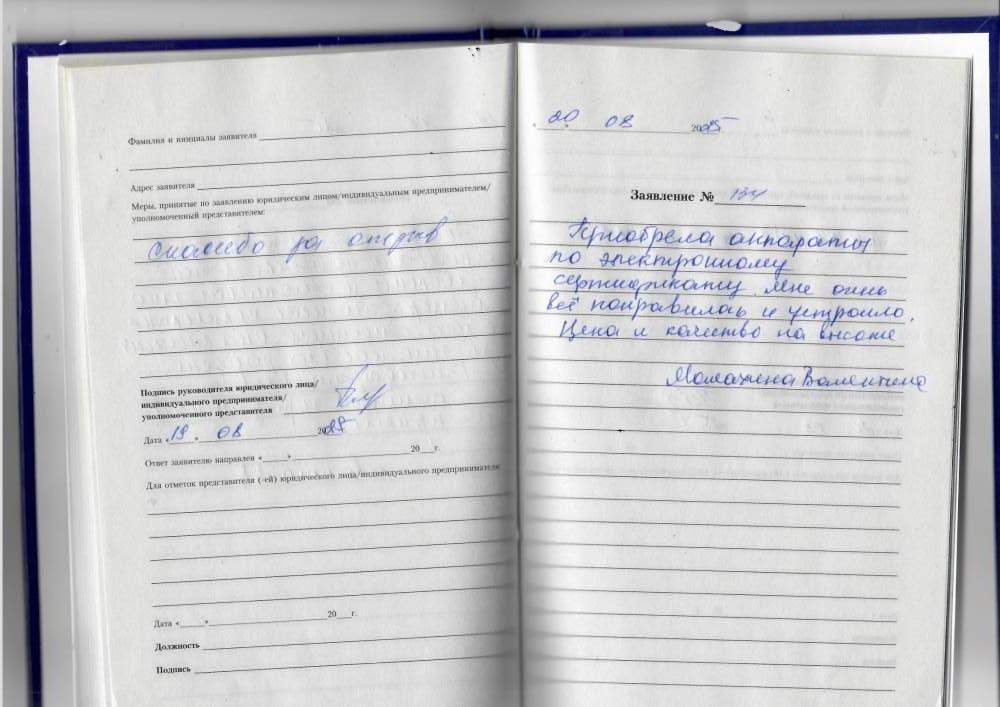 Фамилия и инициалы заявителя
Адрес заявителя
Меры, принятые по заявлению юридическим лицом/индивидуальным предпринимателем/
уполномоченный представителем:
спасибо за отзыв
Подпись руководителя юридического лица/
индивидуального предпринимателя/
уполномоченного представителя
Дата «19» 08 2025
Ответ заявителю направлен « » 20 г.
Для отметок представителя (-ей) юридического лица/индивидуального предпринимателя
Дата « » 20 г.
Должность
Подпись
20 08 2025
Заявление № 134
Приобрела аппараты
по электронному
сертификату. Мне очень
всё понравилась и устроило.
Цена и качество на высоте
Валентина